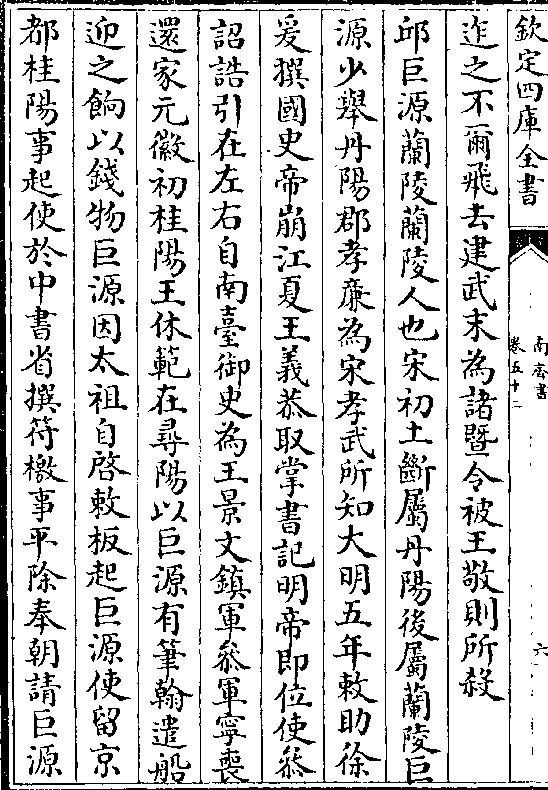 欽定四庫全書
南齊書
卷五十二
六
迮之不爾飛去建武末為諸暨令被王敬則所殺
邱巨源蘭陵蘭陵人也宋初土斷屬丹陽後屬蘭陵巨
源少舉丹陽郡孝廉為宋孝武所知大明五年敕助徐
爰撰國史帝崩江夏王義恭取掌書記明帝即位使叅
詔誥引在左右自南臺御史為王景文鎮軍叅軍寧喪
還家元徽初桂陽王休範在尋陽以巨源有筆翰遣船
迎之餉以錢物巨源因太祖自啓敕板起巨源使留京
都桂陽事起使於中書省撰符檄事平除奉朝請巨源